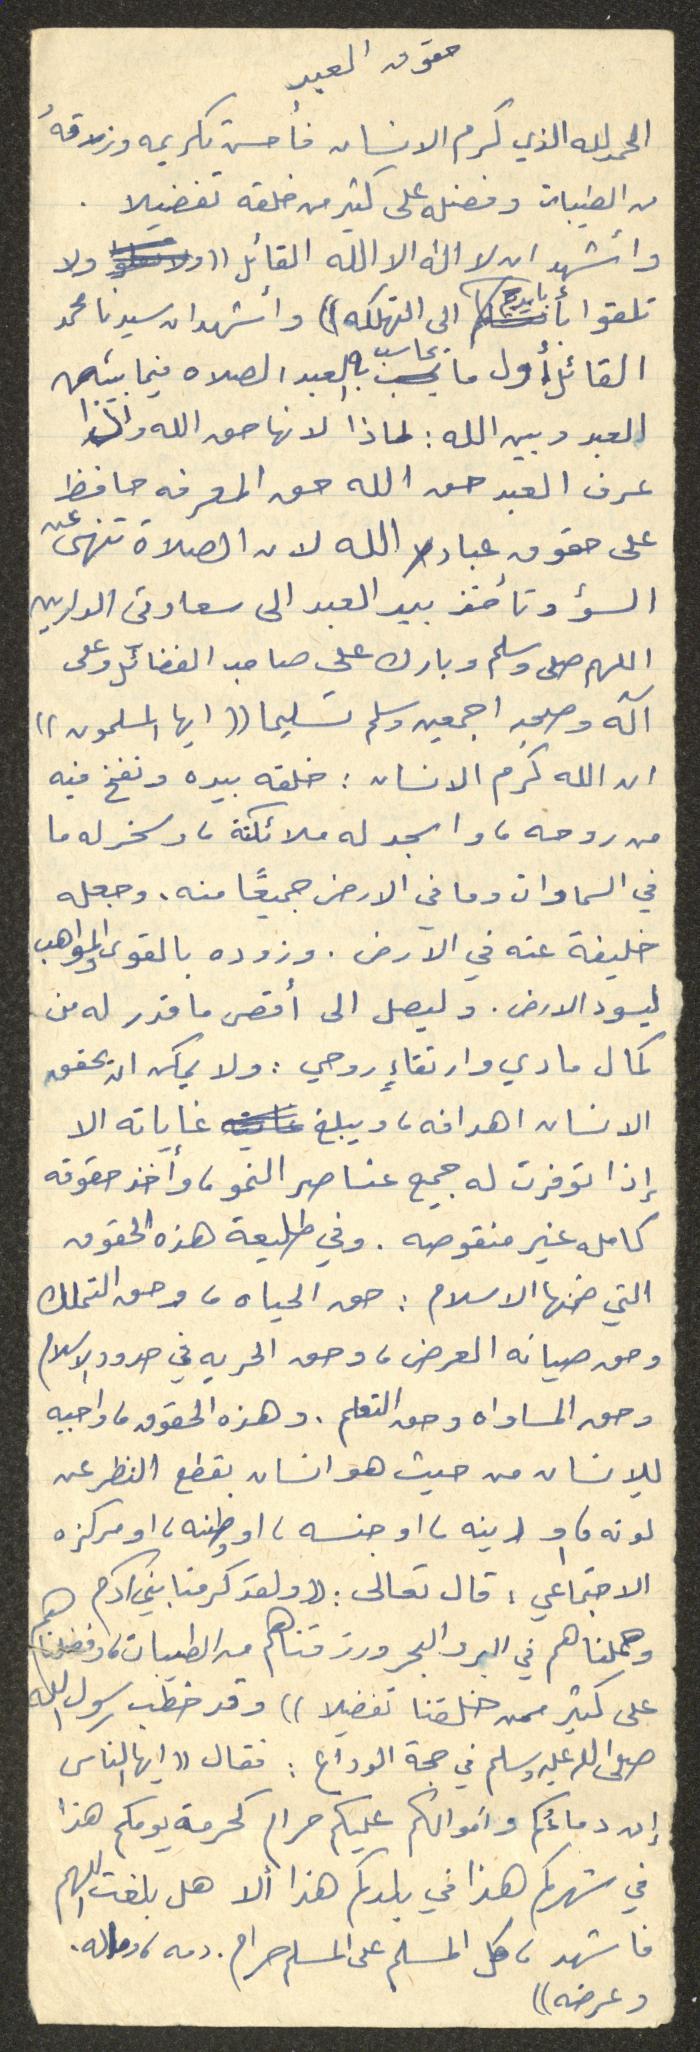 حقوق العبد
الحمد لله الذي كرم الانسان فأحسن تكريمه ورزقه
من الطيبات وفضله على كثير من خلقه تفضيلا .
وأشهد ان لا اله الا الله القائل ((ولا
تلقوا بأيديكم الى التهلكه)) وأشهد ان سيدنا محمد
القائل أول ما يحاسب به العبد الصلاه فيما بينه
العبد وبين الله : لماذا لانها حق الله واذا
عرف العبد حق الله حق المعرفه حافظ
على حقوق عباد الله لان الصلاة تنهى عن
السؤ وتأخذ بيد العبد الى سعادتى الدارين
اللهم صلى وسلم وبارك على صاحب الفضائل وعلى
آله وصحبه اجمعين وسلم تسليما ((ايها المسلمون))
ان الله كرم الانسان : خلقه بيده ونفخ فيه
من روحه ، واسجد له ملائكتة ، وسخر له ما
في السماوات وما في الارض جميعًا منه . وجعله
خليفة عنه في الارض . وزوده بالقوى والمواهب
ليسود الارض . وليصل الى أقصى ما قدر له من
كمال مادي وارتقاءٍ روحي : ولا يمكن ان يحقق
الانسان اهدافه ، ويبلغ غاياته الا
إذا توفرت له جميع عناصر النمو ، وأخذ حقوقه
كامله غير منقوصه . وفي طليعة هذه الحقوق
التي ضمنها الاسلام : حق الحياه ، وحق التملك
وحق صيانه العرض ، وحق الحريه في حدود الاسلام
وحق المساواه وحق التعلم . وهذه الحقوق ، واجبه
للإنسان من حيث هو انسان بقطع النظر عن
لونه ، او دينه ، او جنسه ، او وطنه ، او مركزه
الاجتماعي ، قال تعالى : ((ولقد كرمنا بني آدم
وحملناهم في البر والبحر ورزقناهم من الطيبات ، وفضلناهم
على كثير ممن خلقنا تفضيلا)) وقد خطب رسول الله
صلى الله عليه وسلم في حجة الوداع : فقال ((ايها الناس
إن دماءكم واموالكم عليكم حرام كحرمة يومكم هذا
في شهركم هذا في بلدكم هذا ألا هل بلغت اللهم
فاشهد ، كل المسلم على المسلم حرام . دمه ، وماله .
وعرضه))